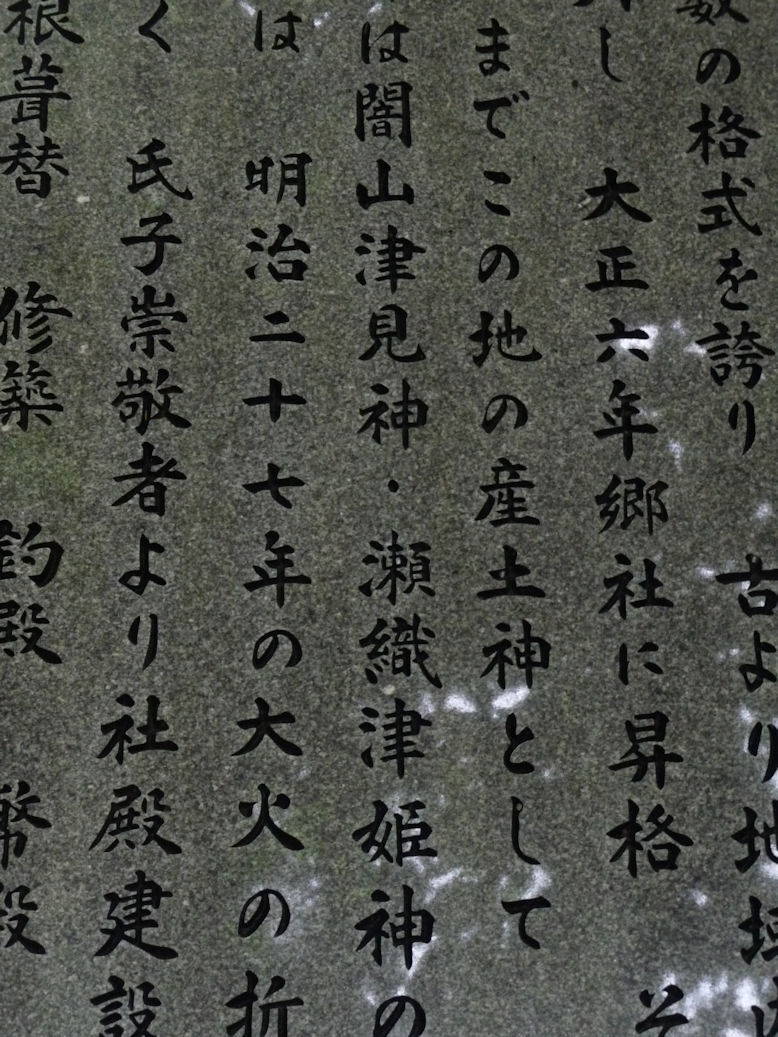 数の格式を誇り 古より地域
し 大正六年郷社に昇格 そ
までこの地の産土神として
は闇山津見神・瀬織津姫神の
は 明治二十七年の大火の折
く 氏子崇敬者より社殿建設
根葺替 修築 釣殿 幣殿